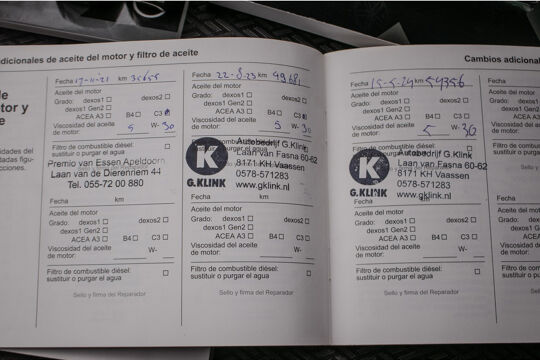 adicionales de aceite del motor y filtro de aceite
Cambios adicional
de
otor y
e
idades del
tadas figu-
cciones.
Fecha 17-11-'21 km 31655
Aceite del motor
Grado: dexos1 □ dexos2 □
dexos1 Gen2 □
ACEA A3 □ B4 □ C3
Viscosidad del aceite
de motor: 5 W- 30
Filtro de combustible diésel: □
sustituir o purgar el agua
Premio van Essen Apeldoorn
Laan van de Dierenriem 44
Tel. 055-72 00 880
Fecha km
Aceite del motor
Grado: dexos1 □ dexos2 □
dexos1 Gen2 □
ACEA A3 □ B4 □ C3 □
Viscosidad del aceite
de motor: W-
Filtro de combustible diésel: □
sustituir o purgar el agua
Sello y firma del Reparador
Fecha 22-8-23 km 49681
Aceite del motor
Grado: dexos1 □ dexos2 □
dexos1 Gen2 □
ACEA A3 □ B4 □ C3
Viscosidad del aceite
de motor: 5 W- 30
K
G.KLINK
Autobedrijf G.Klink
Laan van Fasna 60-62
8171 KH Vaassen
0578-571283
www.gklink.nl
Fecha km
Aceite del motor
Grado: dexos1 □ dexos2 □
dexos1 Gen2 □
ACEA A3 □ B4 □ C3 □
Viscosidad del aceite
de motor: W-
Filtro de combustible diésel: □
sustituir o purgar el agua
Sello y firma del Reparador
Fecha 15-5-24 km 54356
Aceite del motor
Grado: dexos1 □ dexos2 □
dexos1 Gen2 □
ACEA A3 □ B4 □ C3
Viscosidad del aceite
de motor: 5 W- 30
K
G.KLINK
Autobedrijf G.Klink
Laan van Fasna 60-62
8171 KH Vaassen
0578-571283
www.gklink.nl
km
Aceite del motor
Grado: dexos1 □ dexos2 □
dexos1 Gen2 □
ACEA A3 □ B4 □ C3 □
Viscosidad del aceite
de motor: W-
Filtro de combustible diésel: □
sustituir o purgar el agua
Sello y firma del Reparador
Fecha
Aceite del
Grado: d
Viscosidad
de motor:
Filtro de
sustituir
Fecha
Aceite
Grado:
Viscosi
de mo
Filtro
susti